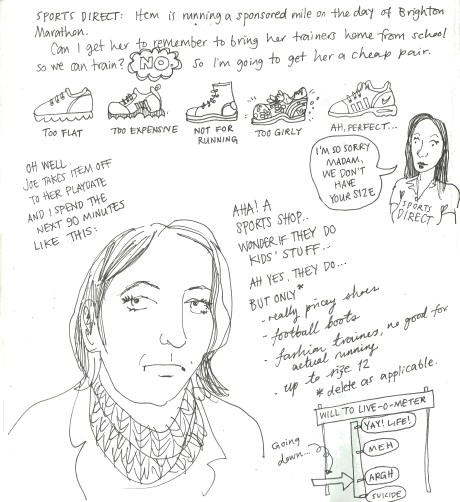 SPORTS DIRECT: Item is running a sponsored mile on the day of Brighton
Marathon.
Can I get her to remember to bring her trainers home from school
so we can train? NO. so I'm going to get her a cheap pair.
TOO FLAT
TOO EXPENSIVE
NOT FOR
RUNNING
TOO GIRLY
AH, PERFECT...
I'M SO SORRY
MADAM,
WE DON'T
HAVE
YOUR SIZE
SPORTS
DIRECT
OH WELL.
JOE TAKES ITEM OFF
TO HER PLAYDATE
AND I SPEND THE
NEXT 90 MINUTES
LIKE THIS:
AHA! A
SPORTS SHOP..
WONDER IF THEY DO
KIDS' STUFF...
AH YES, THEY DO...
BUT ONLY*
- really pricey shoes
- football boots
- fashion traines, no good for
actual running
- up to size 12
* delete as applicable.
WILL TO LIVE-O-METER
YAY! LIFE!
MEH
ARGH
SUICIDE
Going
down...